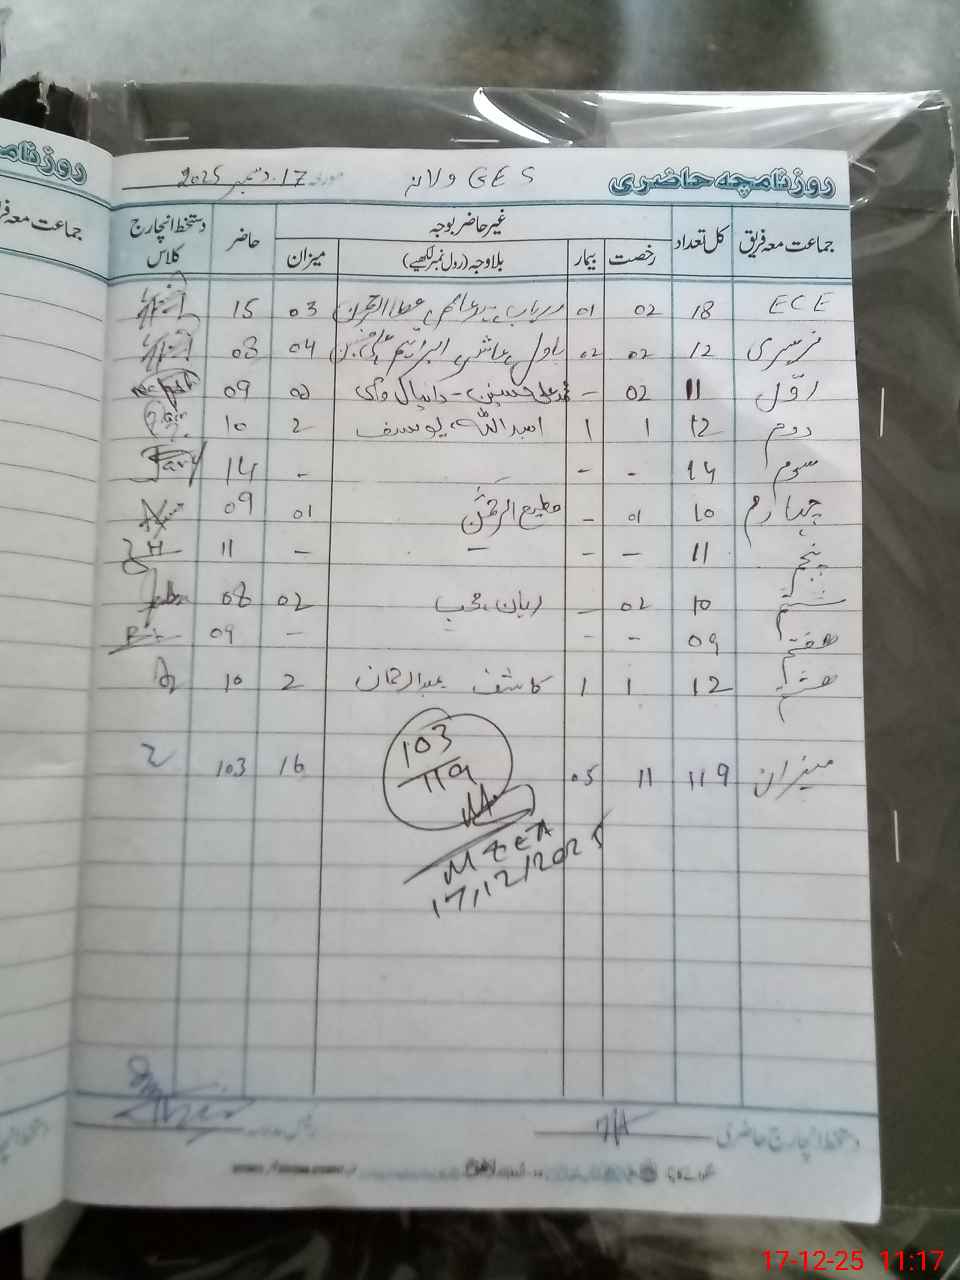 روزنامچہ حاضری GES ولانہ مورخہ 17 دسمبر 2025
جماعت معہ فریق کل تعداد غیر حاضر بوجہ حاضر دستخط انچارج کلاس
رخصت بیمار بلاوجہ (رول نمبر لکھیے) میزان
ECE 18 02 01 درباب، عطاالرحمن 03 15
نرسری 12 02 02 ابراہیم 04 08
اوّل 11 02 - محمد علی حسنین - دانیال 02 09
دوم 12 1 1 اسد اللہ، یوسف 2 10
سوم 14 - - - 14
چہارم 10 01 - مطیع الرحمٰن 01 09
پنجم 11 - - - - 11
ششم 10 02 - ریان، محب 02 08
ہفتم 09 - - - 09
ہشتم 12 1 1 کاشف عبدالرحمان 2 10
میزان 119 11 05 16 103
103
119
MEEA
17/12/2025
دستخط انچارج حاضری
روزنامچہ
جماعت معہ
دستخط انچارج
17-12-25 11:17